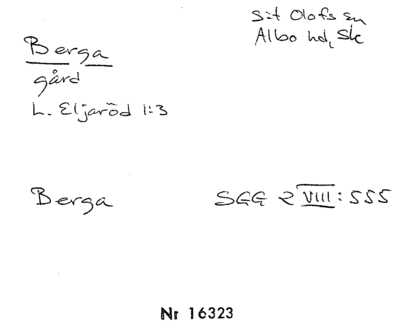 Berga
gård
L. Eljaröd 1:3
S:t Olofs sn
Albo hd, Sk
Berga
SGG 2 VIII: 555
Nr 16323